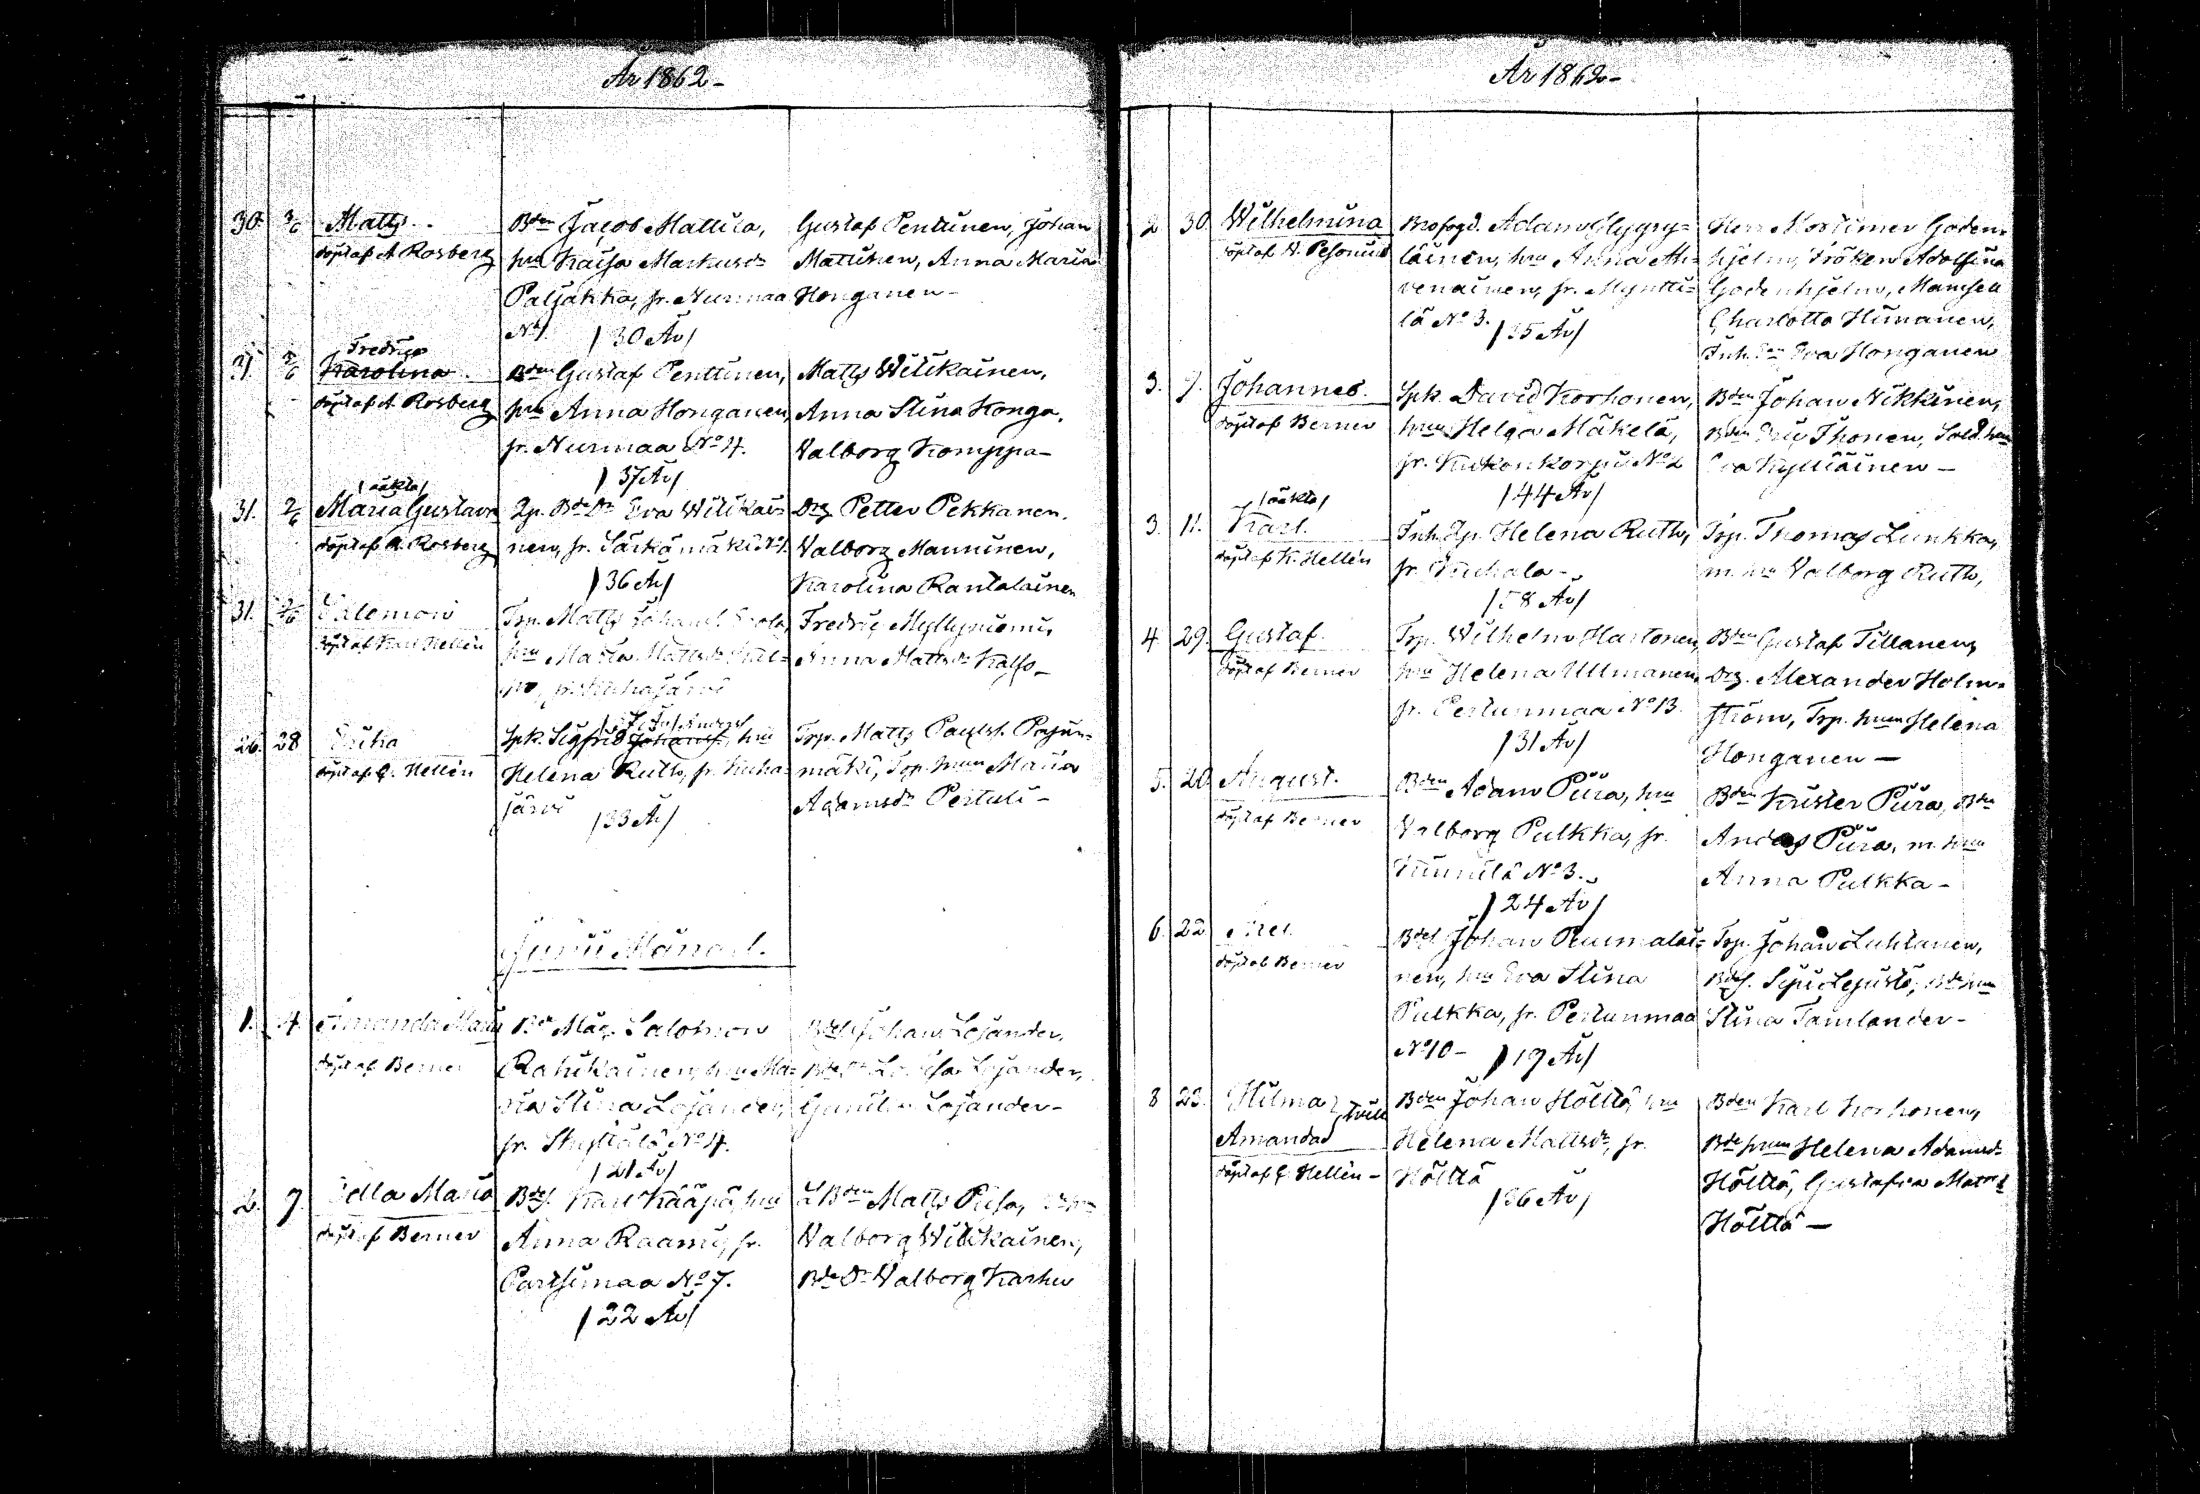 År 1862-
30. 3/6 Matts
döpt af A Rosberg
Bden Jacob Mattila,
hu Kaisa Markusdr
Paljakka, fr. Nurmaa
No 1.
/30 År/
Gustaf Penttinen, Johan
Matikken, Anna Maria
Honganen-
31. 2/6 Fredrica
Karolina
döpt af A. Rosberg
Bden Gustaf Penttinen,
hu Anna Honganen,
fr. Nurmaa No 4.
/37 År/
Matts Wilikainen,
Anna Stina Konga,
Valborg Komppa-
/oäkta/
31. 2/6 Maria Gustava
döpt af A. Rosberg
Qp. Bde Dr Eva Wilikai=
nen, fr. Särkämäki No 1.
/36 År/
Drg Petter Pekkanen,
Valborg Manninen,
Karolina Rantalainen
31. Salomon
döpt af Karl Hellén
Trp. Matts Johansf.
hu Maria Mattsdr
/27 År/
Fredric Myllyniemi,
Anna Mattsdr Kalso-
26. 28 Erika
döpt af G. Hellén
Spk. Sigfrid Johansf., hu
Helena Ruth, fr. Kuha=
järvi
/33 År/
Trp. Matts Paulsf. Pajun=
mäki, Trp. hun Maria
Adamsdr Pertuli-
Junii Månad.
1. 4. Amanda Maria
döpt af Berner
Bde Måg Salomon
Rahikainen, hu Ma=
ria Stina Lojander,
fr. Skyttälä No 4.
/21 År/
Bdes Johan Lojander,
Bde Dr Lovisa Lojander,
Gunilla Lojander-
2. 7. Edla Maria
döpt af Berner
Bdes. Karl Kääpä, hu
Anna Raami, fr.
Partsimaa No 7.
/22 År/
L Bden Matts Piisa,
Valborg Wilikainen,
Bde Dr Valborg Karhu
År 1862-
2 30. Wilhelmina
döpt af A. Pesonius
Brofogd. Adam Glygry=
läinen, hu Anna Ah=
venainen, fr. Myntti=
lä No 3.
/35 År/
Herr Mortimer Goden=
hjelm, Fröken Adolfina
Godenhjelm, Mamsell
Charlotta Himanen,
Inh. Eva Honganen
3. 7. Johannes.
döpt af Berner
Spk. David Korhonen,
hun Helga Mäkelä,
fr. Kukonkorpi No 2
/44 År/
Bden Johan Nikkinen,
Bden Eric Ihonen, Sold. hu
Eva Kylliäinen-
/oäkta/
3. 11. Karl.
döpt af K. Hellén
Inh. Qp. Helena Ruth,
fr. Kuhala-
/58 År/
Trp. Thomas Lunkka,
m. hu Valborg Ruth,
4 29. Gustaf.
döpt af Berner
Trp. Wilhelm Hartonen,
hu Helena Ullmanen,
fr. Pertunmaa No 13.
/31 År/
Bden Gustaf Tillanen,
Drg. Alexander Holm=
ström, Trp. hun Helena
Honganen-
5. 20. August.
döpt af Berner
Bden Adam Piira, hu
Valborg Pulkka, fr.
Kuunilä No 3.
/24 År/
Bden Krister Piira, Bde
Anders Piira, m. hun
Anna Pulkka-
6. 22 Axel
döpt af Berner
Bdes Johan Ruumalai=
nen, hu Eva Stina
Pulkka, fr. Pertunmaa
No 10-
/19 År/
Trp. Johan Luhtanen,
Bdes. Lejusto, Bde hun
Stina Tamlander-
8 23. Hilma
Amanda
Tvill
döpt af G. Hellén-
Bden Johan Hölttä, hu
Helena Mattsdr, fr.
Hölttä
/36 År/
Bden Karl Korhonen,
Bde hun Helena Adamsdr
Hölttä, Gustafva Mattsd
Hölttä-